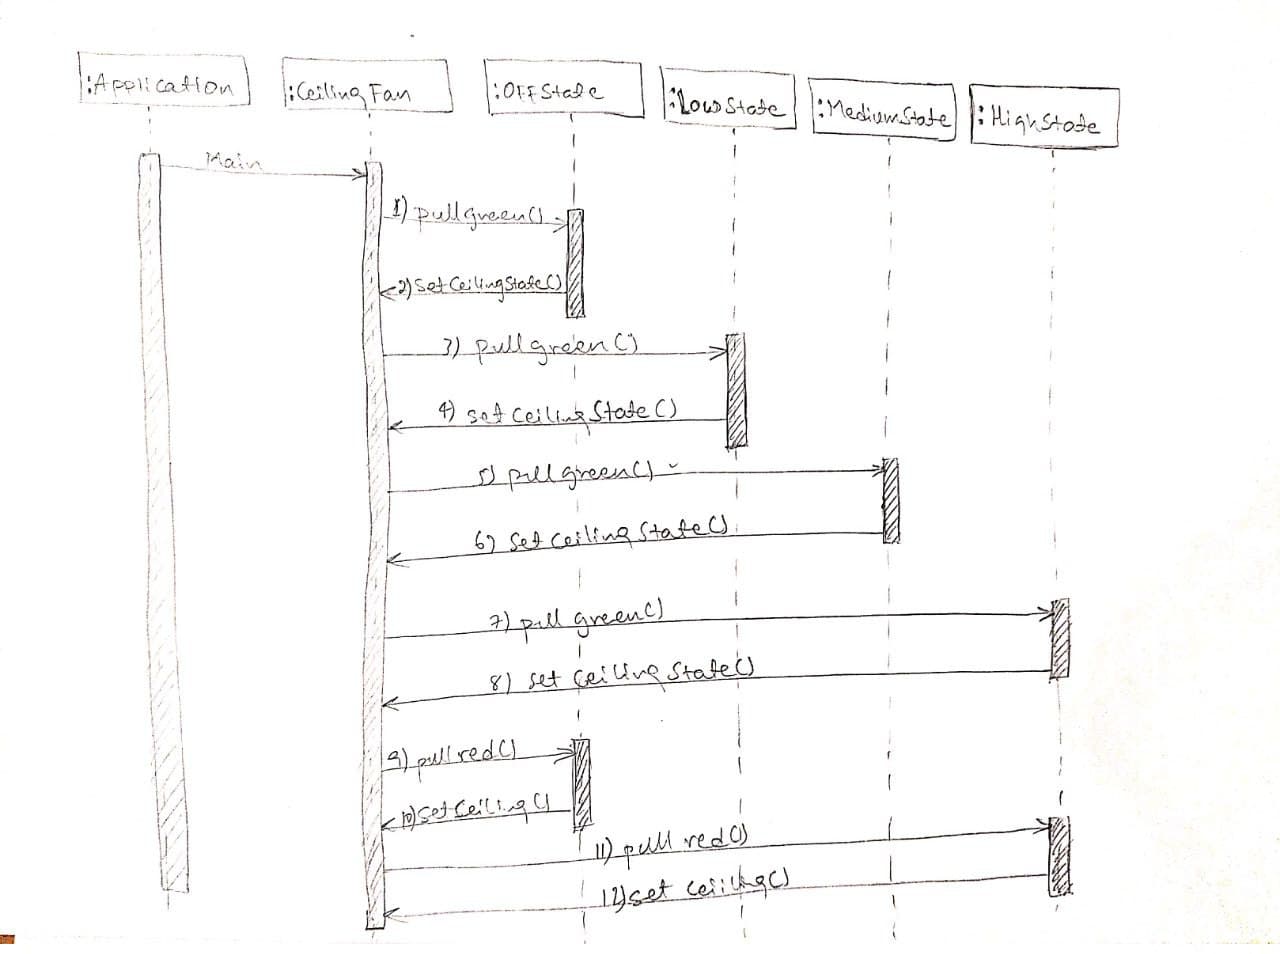 :Application
:CeilingFan
:OFFState
:LowState
:MediumState
:HighState
Main
1) pullgreen()
2) SetCeilingState()
3) pullgreen()
4) setCeilingState()
5) pullgreen()
6) SetCeilingState()
7) pullgreen()
8) set CeilingState()
9) pullred()
10) setCeiling()
11) pull red()
12) set Ceiling()